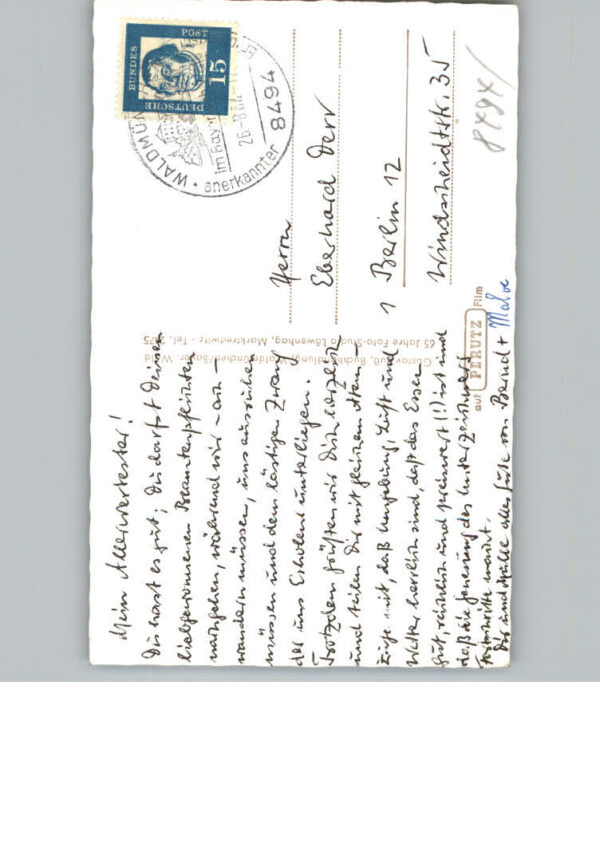 Mein Allerwertester!
Du hast es gut; Du darfst Deinen
liebgewonnenen Beamtenpflichten
nachgehen, während wir – ach –
wandern müssen, uns ausruhen
müssen und dem lästigen Zwang
des uns Erholens unterliegen.
Trotzdem grüßen wir Dich herzlich
und teilen Dir mit gleichem Atem-
zuge mit, daß Umgebung, Luft und
Wetter herrlich sind, daß das Essen
gut, reichlich und preiswert (!) ist und
daß die Genesung des Unterzeichners
Fortschritte macht.
Dir und alles Gute von Bernd +
Malve
Herrn
Eberhard Derv
1 Berlin 12
Windscheidtstr. 35
8494/
DEUTSCHE
BUNDES
POST
15
WALDMÜN
anerkannter
im bay.
26.-8.64
8494
Gustav Auß, Buchhandlung, Waldmünchen/Bay. Wald
65 Jahre Foto-Studio Löwenhag, Marktredwitz · Tel. 2175
auf PERUTZ Film